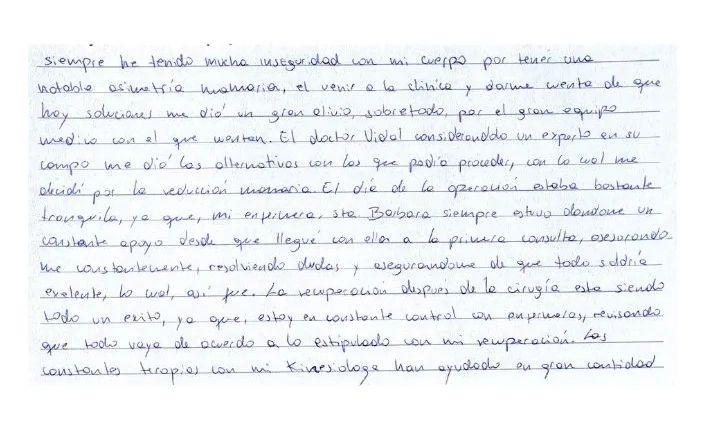 siempre he tenido mucha inseguridad con mi cuerpo por tener una
notable asimetría mamaria, el venir a la clinica y darme cuenta de que
hay soluciones me dió un gran alivio, sobretodo, por el gran equipo
medico con el que cuentan. El doctor Vidal considerandolo un experto en su
campo me dió las alternativas con las que podía proceder, con lo cual me
decidí por la reducción mamaria. El día de la operación estaba bastante
tranquila, ya que, mi enfermera, sta. Barbara siempre estuvo dandome un
constante apoyo desde que llegué con ellos a la primera consulta, asesorando
me constantemente, resolviendo dudas y asegurandome de que todo saldría
exelente, lo cual, así fue. La recuperación despues de la cirugía esta siendo
todo un exito, ya que, estoy en constante control con enfermeras, revisando
que todo vaya de acuerdo a lo estipulado con mi recuperación. Las
constantes terapias con mi Kinesiologa han ayudado en gran cantidad